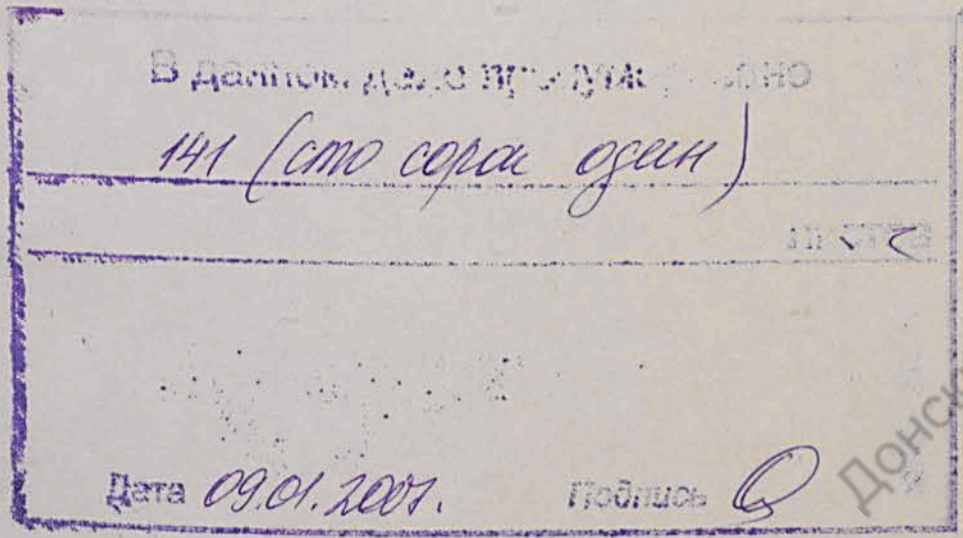 В данном деле пронумеровано
141 (сто сорок один)
Дата 09.01.2007.
Подпись
Донск